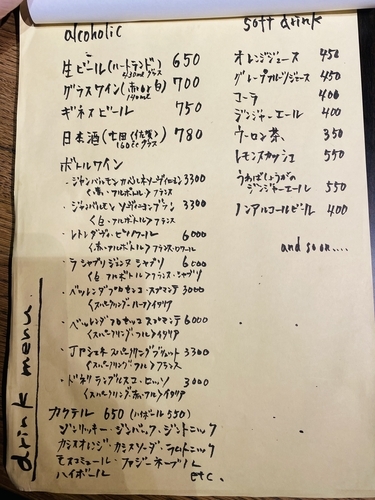 alcoholic
生ビール(ハートランド) 650
430mlグラス
グラスワイン(赤or白) 700
140ml
ギネスビール 750
日本酒(七田(佐賀)) 780
160ccグラス
ボトルワイン
・ジャンバルモン カベルネソーヴィニヨン 3300
<赤・フルボトル> フランス
・ジャンバルモン ソーヴィニヨンブラン 3300
<白・フルボトル> フランス
6000
<赤・フルボトル> フランス・ロワール
・ラ シャブリジェンヌ シャブリ 6000
<白 フルボトル> フランス・シャブリ
・ベッレンダ プロセッコ スプマンテ 3000
<スパークリング・ハーフ> イタリア
・ベッレンダ プロセッコ スプマンテ 6000
<スパークリング・フル> イタリア
・JPシェネ スパークリングブリュット 3300
<スパークリング フル> フランス
・ドネリ ランブルスコ・ロッソ 3000
<スパークリング 赤・フル> イタリア
カクテル 650 (ハイボール550)
ジンリッキー・ジンバック・ジントニック
カシスオレンジ・カシスソーダ・
モスコミュール・ファジーネーブル
ハイボール etc.
drink menu.
soft drink
オレンジジュース 450
グレープフルーツジュース 450
コーラ 400
ジンジャーエール 400
ウーロン茶、 350
レモンスカッシュ 550
うえばしょうがの
ジンジャーエール 550
ノンアルコールビール 400
and so on....